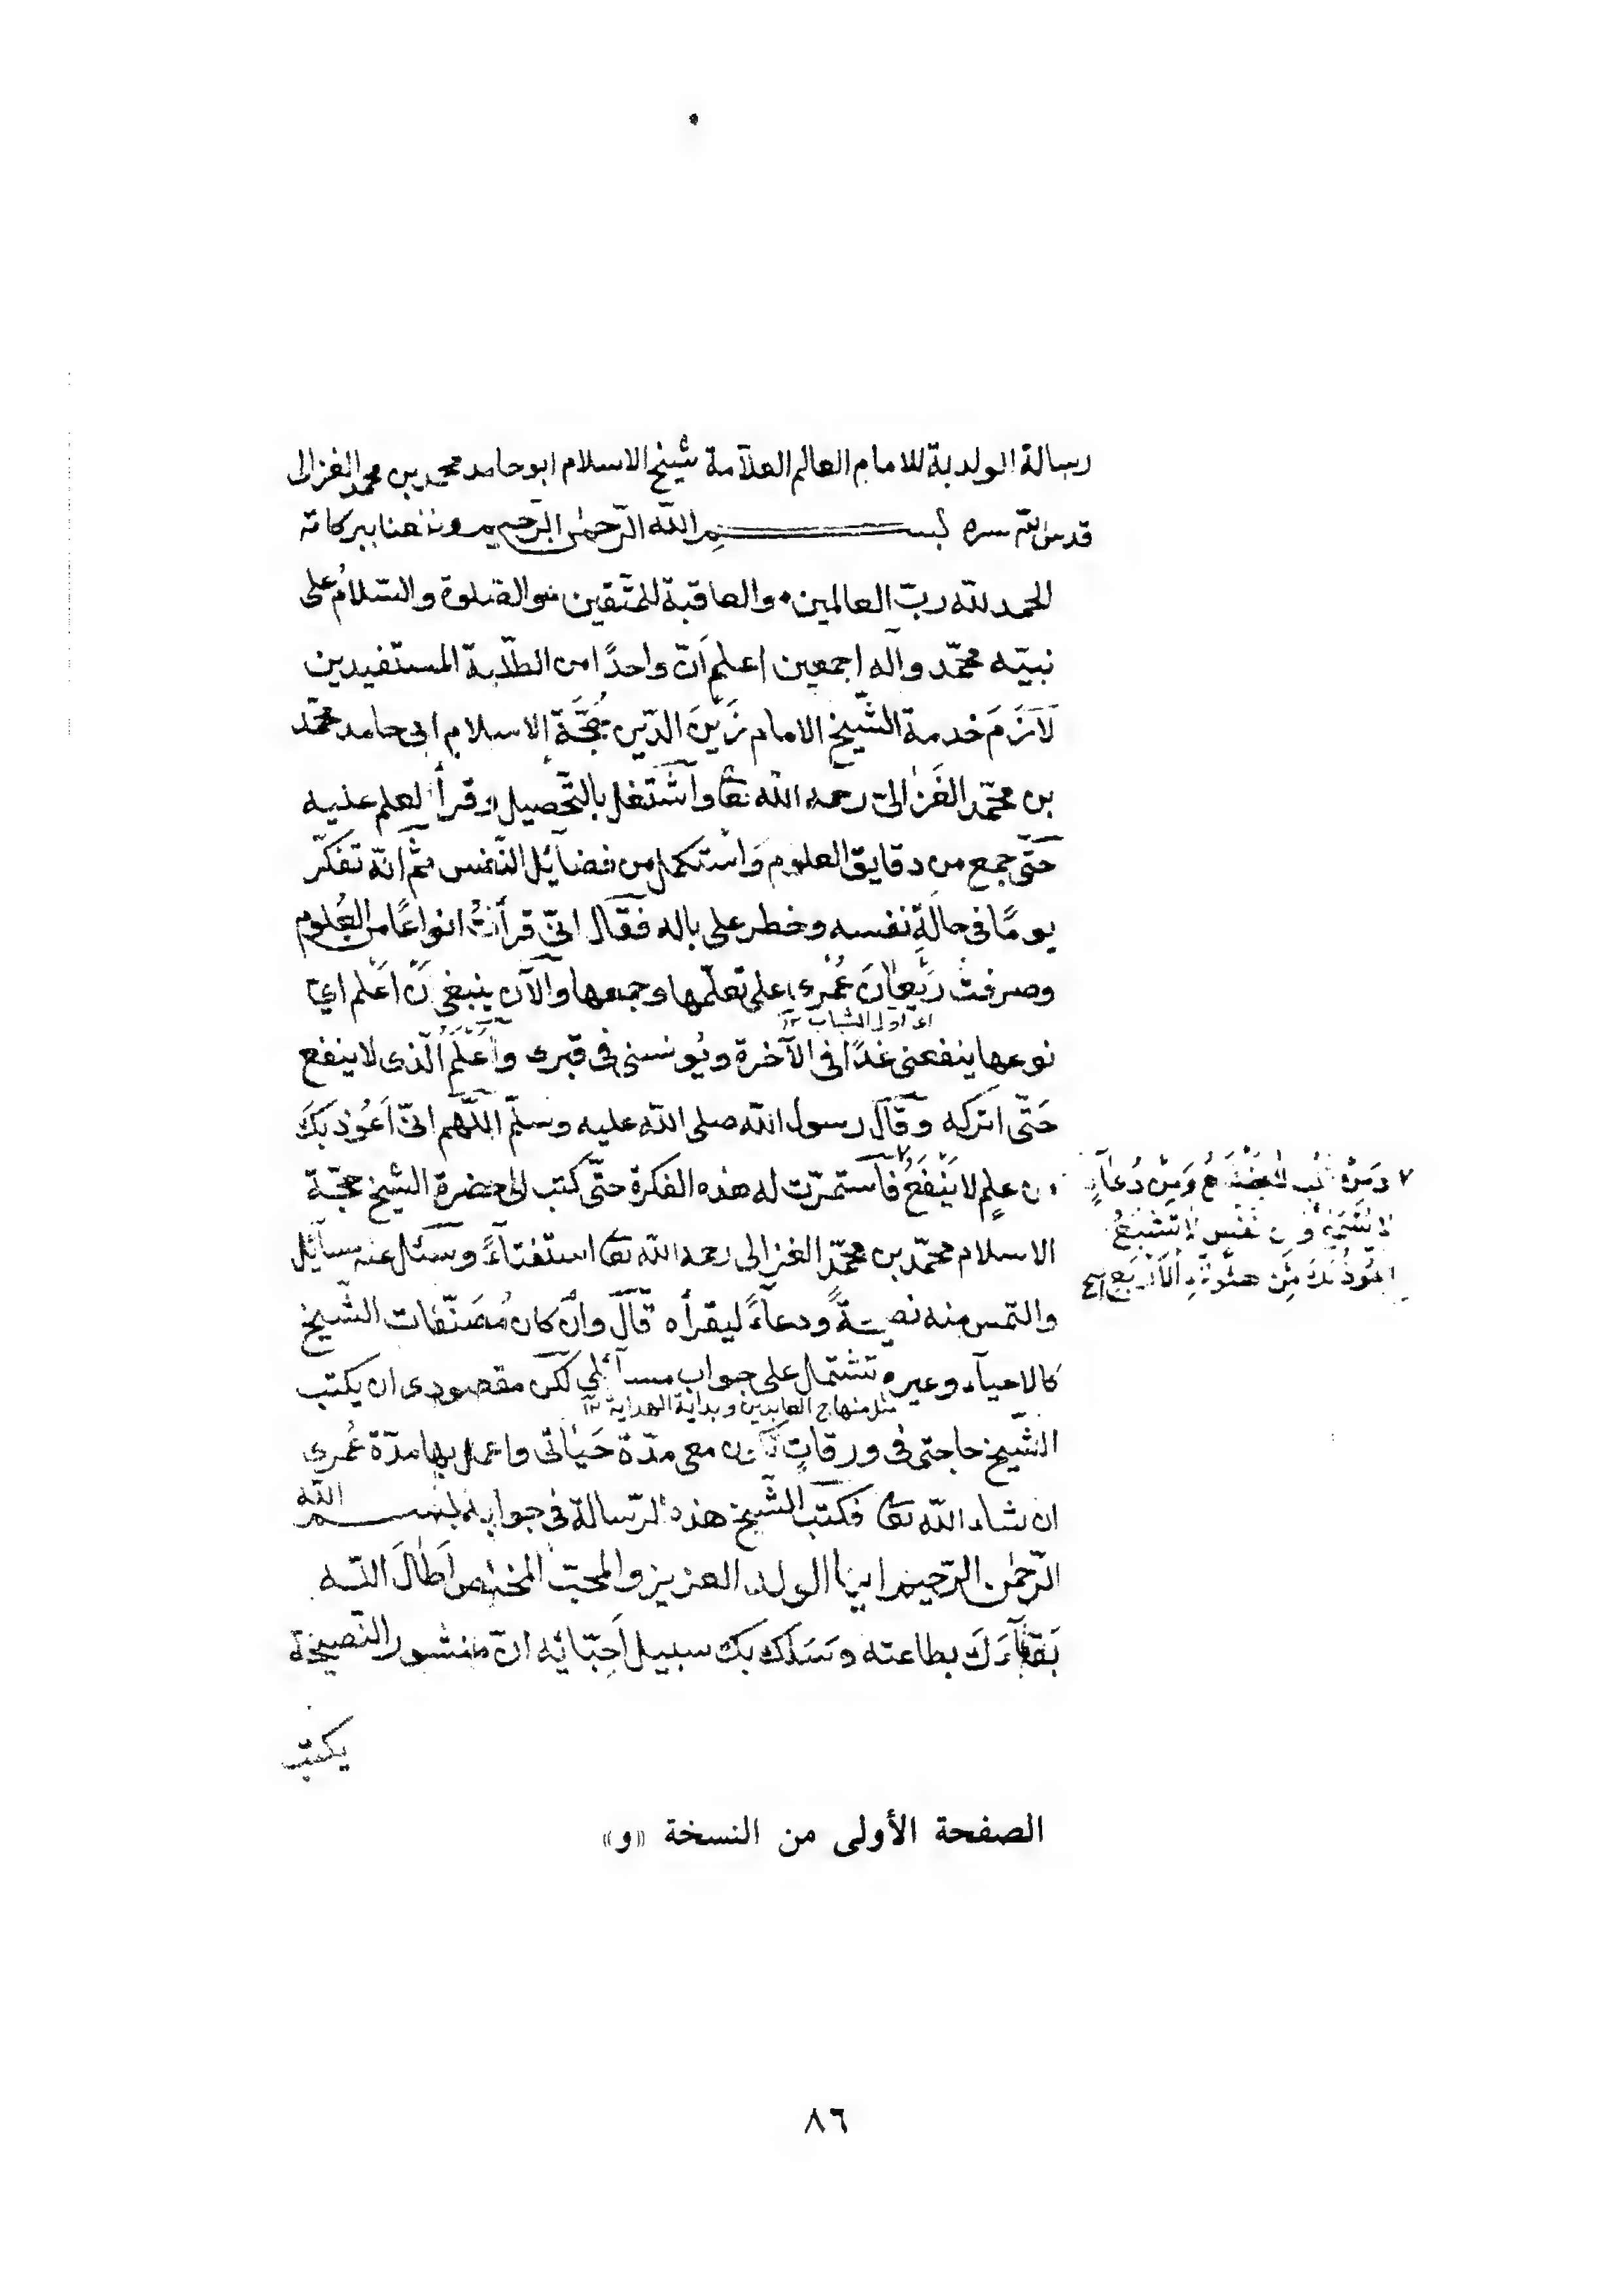 رسالة الولدية للامام العالم العلآمة شيخ الاسلام ابو حامد محمد بن محمد الغزالى
قدس الله سره بسم الله الرّحمن الرّحيم ونفعنا ببركاته
الحمد لله ربّ العالمين والعاقبة للمتّقين والصّلوة والسّلامُ على
نبيّه محمّد وآله اجمعين اعلم اَنّ واحدًا من الطّلبة المستفيدين
لَازَمَ خدمة الشّيخ الامام زَيْنَ الدّين حُجَّةَ الاسلام ابى حامد محمّد
بن محمّد الغَزالىّ رحمه الله تعا وٱشتغل بالتّحصيل وقرأ العلم عليه
حتّى جمع من دقايق العلوم وَاستكمل من فضائل النّفس ثمّ انّه تفكّر
يومًا فى حالةِ نفسه وخطر على باله فقال انّى قرأتُ انواعًا من العُلوم
وصرفتُ رَيْعانَ عُمْرى على تعلّمها وجمعها والآن ينبغى اَنْ اَعْلم اىّ
اى اول الشباب ١٢
نوعها ينفعنى غدًا فى الآخرة ويُونسنى فى قبرى وأَعْلَمُ الّذى لا ينفع
حَتّى اتركه وقال رسول الله صلى الله عليه وسلّم اللّهم انّى اَعُوذ بكَ
من علمٍ لا يَنْفَعُ فاستمرّت له هذه الفكرة حتّى كتب الى حضرة الشيخ حجّة
٧ وَمِنْ قلب لا يخشع وَمِنْ دُعاءٍ
ومن نفس لا تشبعُ
اعوذ بك من هؤلاء الأربع
الاسلام محمّد بن محمّد الغزالى رحمه الله تعا استفتاءً وسئل عنه مسائل
والتمس منه نصيحةً ودعاءً ليقرأه قال وان كان مُصَنّفات الشّيخ
كالاحياء وغيره تشتمل على جواب مسائلى لكن مقصودى ان يكتب
مثل منهاج العابدين وبداية الهداية ١٢
الشّيخ حاجتى فى ورقاتٍ تكون معى مدّة حَيٰاتى واعمل بها مدّة عُمرى
ان شاء الله تعا فكتب الشّيخ هذه الرّسالة فى جوابه بسم الله
الرّحمٰن الرّحيم ايّها الولد العزيز والمحبّ المخلص اَطٰالَ الله
بَقاءَكَ بطاعته وسَلك بك سبيل اَحِبّائه انّ منشور النّصيحة
يكتب
الصفحة الأولى من النسخة «و»
٨٦